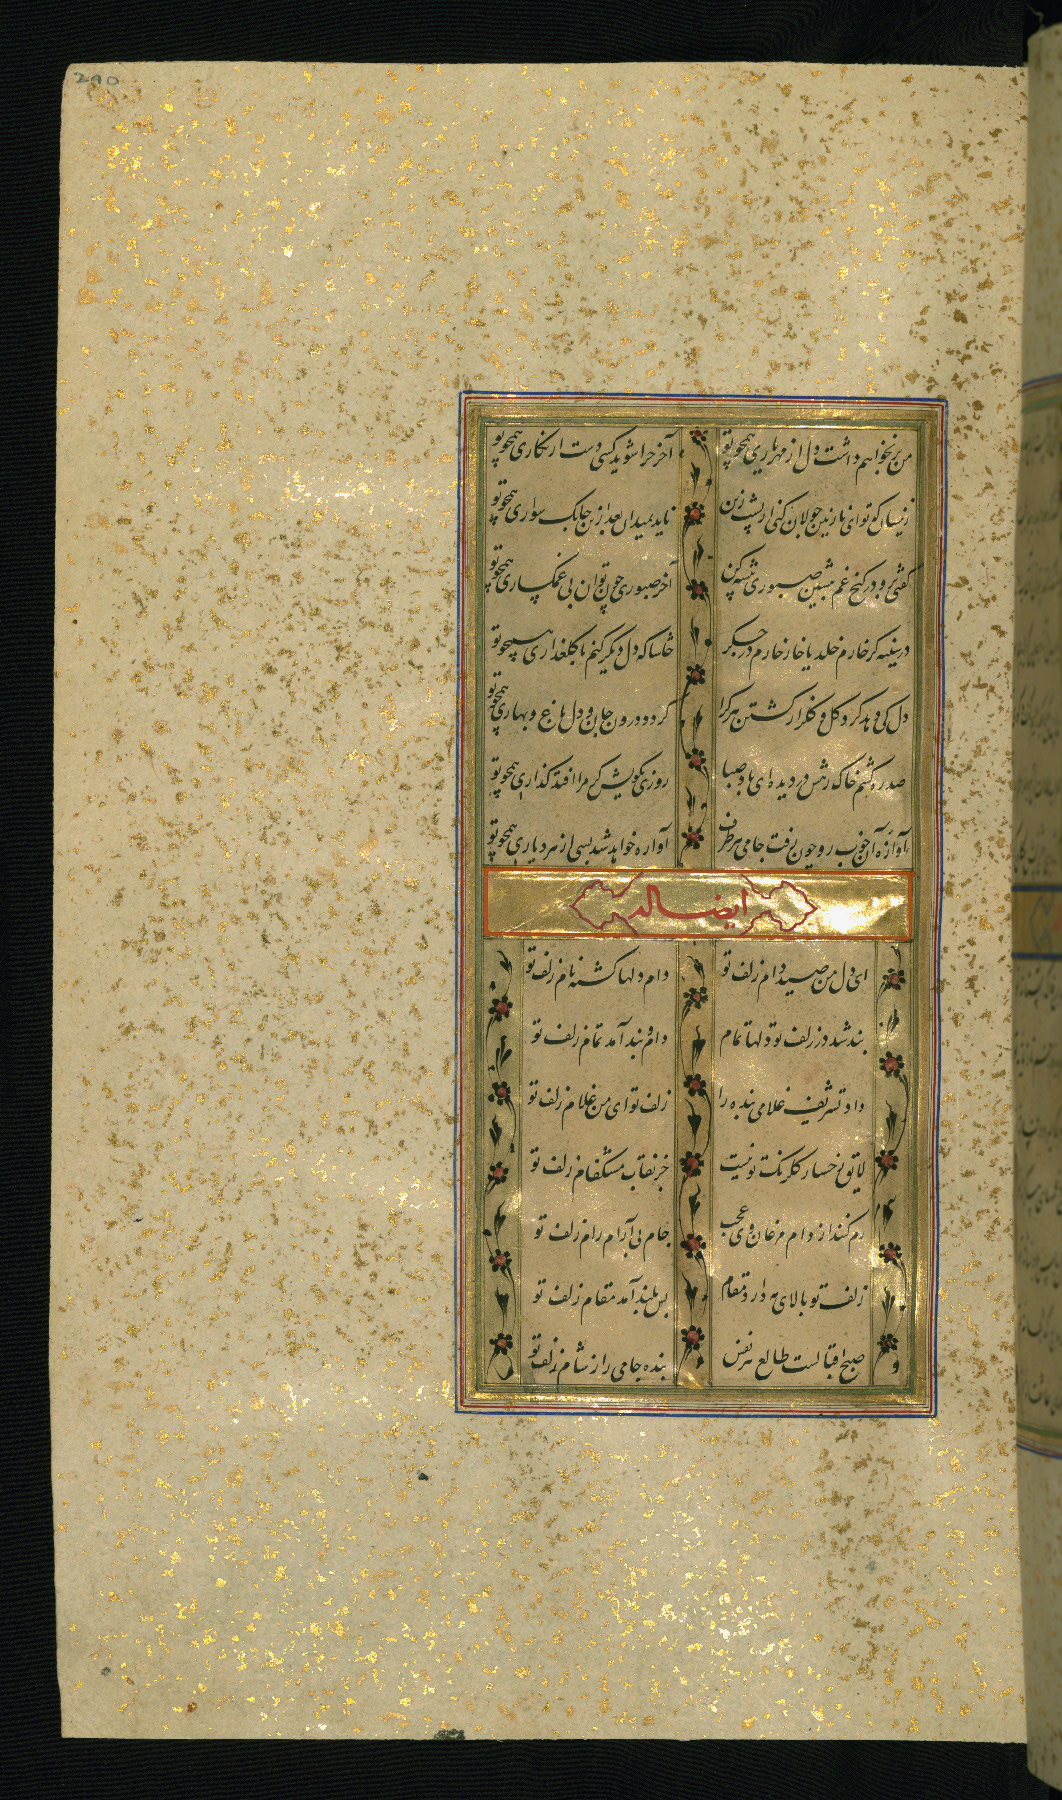 290
من برنخواهم داشت دل از مهر یاری همچو تو آخر چرا شوید کسی دست از نکاری همچو تو
زینسان که تو ای نازنین جولان کنی از پشت زین ناید بمیدان بعد ازین چابک سواری همچو تو
کفتی برو در کنج غم بنشین صبوری پیشه کن آخر صبوری چون توان بی غمکساری همچو تو
در سینه کر خارم خلد یا خار خارم در جکر حاشا که دل دیکر کنم با کلعذاری همچو تو
دل کی دهد کرد کل و کلزار کشتن هر کرا کردد درون جان و دل باغ و بهاری همچو تو
صد ره کشم خاک رهش در دیده ای باد صبا روزی بکویش کر مرا افتد کذاری همچو تو
آوازه آن خوب رو چون رفت جامی هر طرف آواره خواهد شد بسی از هر دیاری همچو تو
ایضا له
ای دل من صید دام زلف تو دام دلها کشته نام زلف تو
بند شد در زلف تو دلها تمام دام و بند آمد تمام زلف تو
داد تشریف غلامی بنده را زلف تو ای من غلام زلف تو
لایق رخسار کلرنکت نیست جز نقاب مشکفام زلف تو
رم کنند از دام مرغان وی عجب جام بی آرام رام زلف تو
زلف تو بالای مه دارد مقام بس بلند آمد مقام زلف تو
صبح اقبالست طالع هر نفس بنده جامی را ز شام زلف تو